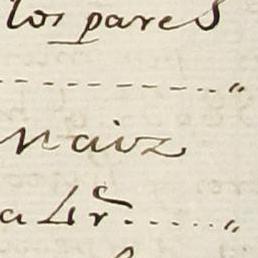 los pares
------ "
naiz
a Lr̃ ..... "